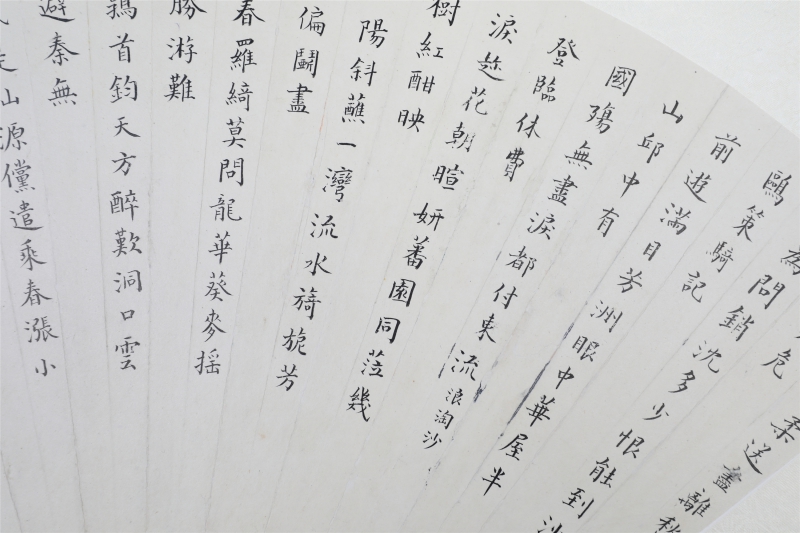 柔送盡離愁
危
為問銷沈多少恨能到沙
鷗策騎記
前遊滿目芳洲眼中華屋半
山邱中有
國殤無盡淚都付東流浪淘沙
登臨休費
淚趁花朝暄妍蕃園同蒞幾
樹紅酣映
陽斜蘸一灣流水旖旎芳
偏鬭盡
春羅綺莫問龍華葵麥搖
勝游難
鷁首鈞天方醉歎洞口雲
避秦無
山源儻遣乘春漲小